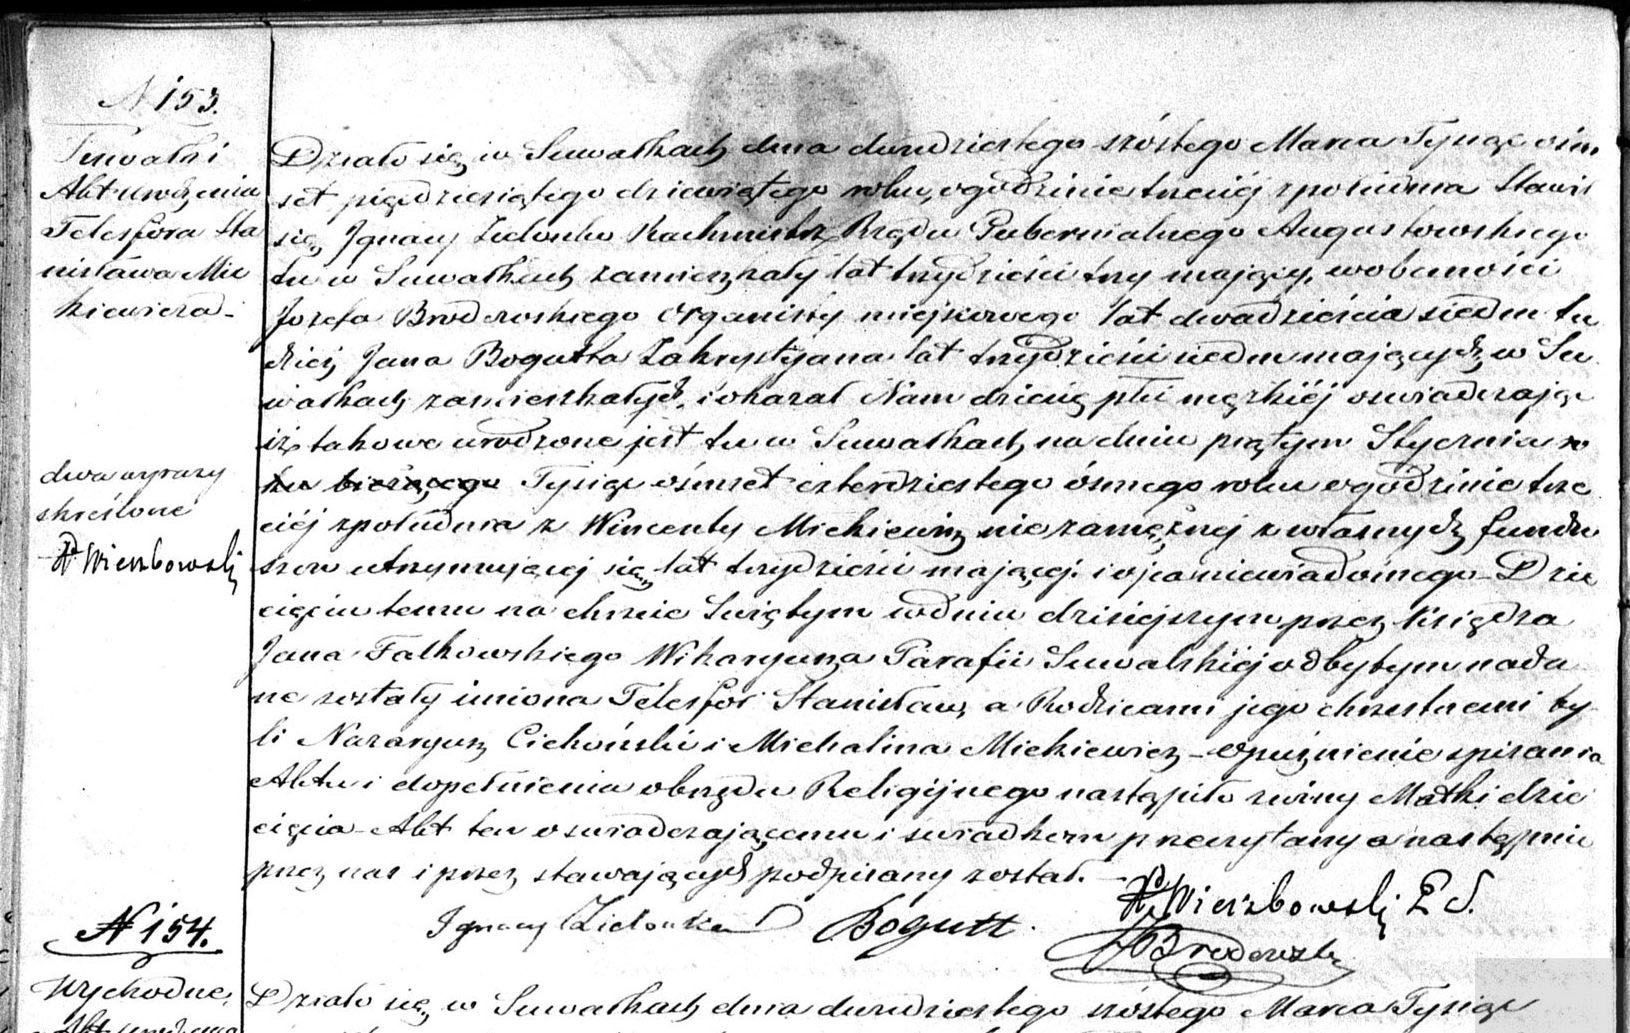 N 153.
Suwałki
Akt urodzenia
Telesfora Sta
nisława Mic
kiewicza -
dwa wyrazy
skreślone
Wierzbowski
Działo się w Suwałkach dnia dwudziestego szóstego Marca Tysiąc ośm
set pięćdziesiątego dziewiątego roku, o godzinie trzeciéj z południa Stawił
się Ignacy Zielonko Rachmistrz Rządu Gubernialnego Augustowskiego
tu w Suwałkach zamieszkały lat trzydzieści trzy mający, w obecności
Jozefa Brodowskiego Organisty miejscowego lat dwadzieścia siedm tu
dzież Jana Bogutta Zakrystyana lat trzydzieści siedm mających w Su
wałkach zamieszkałych, i okazał Nam dziecię płci męzkiéj oswiadczając
iż takowe urodzone jest tu w Suwałkach, na dniu piątym Stycznia ro
ku bieżącego Tysiąc ośmset czterdziestego ósmego roku o godzinie trze
ciéj z południa z Wincenty Mickiewicz niezamężnej z własnych fundu
szow utrzymującej się lat trzydzieści mającej i ojca niewiadomego - Dzie
cięciu temu na chrzcie Swiętym w dniu dzisiejszym przez Księdza
Jana Falkowskiego Wikaryusza Parafii Suwalskiéj odbytym nada
ne zostały imiona Telesfor Stanisław, a Rodzicami jego chrzestnemi by
li Nazaryusz Cichoński i Michalina Mickiewicz - Opóźnienie spisania
Aktu i dopełnienia obrzędu Religijnego nastąpiło z winy Matki dzie
cięcia - Akt ten oswiadczającemu i swiadkom przeczytany a następnie
przez nas i przez stawających podpisany został. -
Wierzbowski
Ignacy Zielonko Bogutt.
Brodowski
N 154.
Wychodne,
Akt urodzenia
Działo się w Suwałkach dnia dwudziestego szóstego Marca Tysiąc